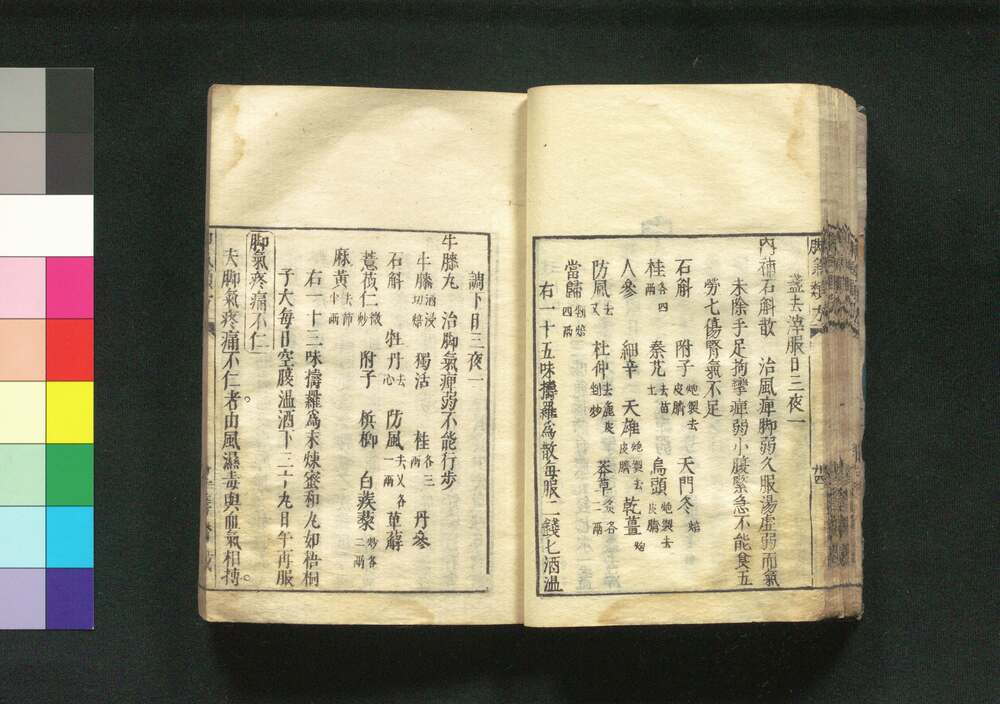 盞去滓服日三夜一
內補石斛散　治風痺脚弱久服湯虛弱而氣
未除手足拘攣痺弱小腹緊急不能食五
勞七傷腎氣不足
石斛　附子炮製去皮臍　天門冬焙
桂各四兩　秦艽去苗土　烏頭炮製去皮臍
人參　細辛　天雄炮製去皮臍　乾薑炮
防風去叉　杜仲去麁皮剉炒　莽草炙各二兩
當歸剉焙四兩
右一十五味擣羅爲散每服二錢匕酒溫
調下日三夜一
牛膝丸　治脚氣痺弱不能行步
牛膝酒浸切焙　獨活　桂各三兩　丹參
石斛　牡丹去心　防風去叉各一兩　萆薢
薏苡仁微炒　附子　檳榔　白蒺藜炒各二兩
麻黃去節半兩
右一十三味擣羅爲末煉蜜和丸如梧桐
子大每日空腹溫酒下三十丸日午再服
脚氣疼痛不仁
夫脚氣疼痛不仁者由風濕毒與血氣相搏